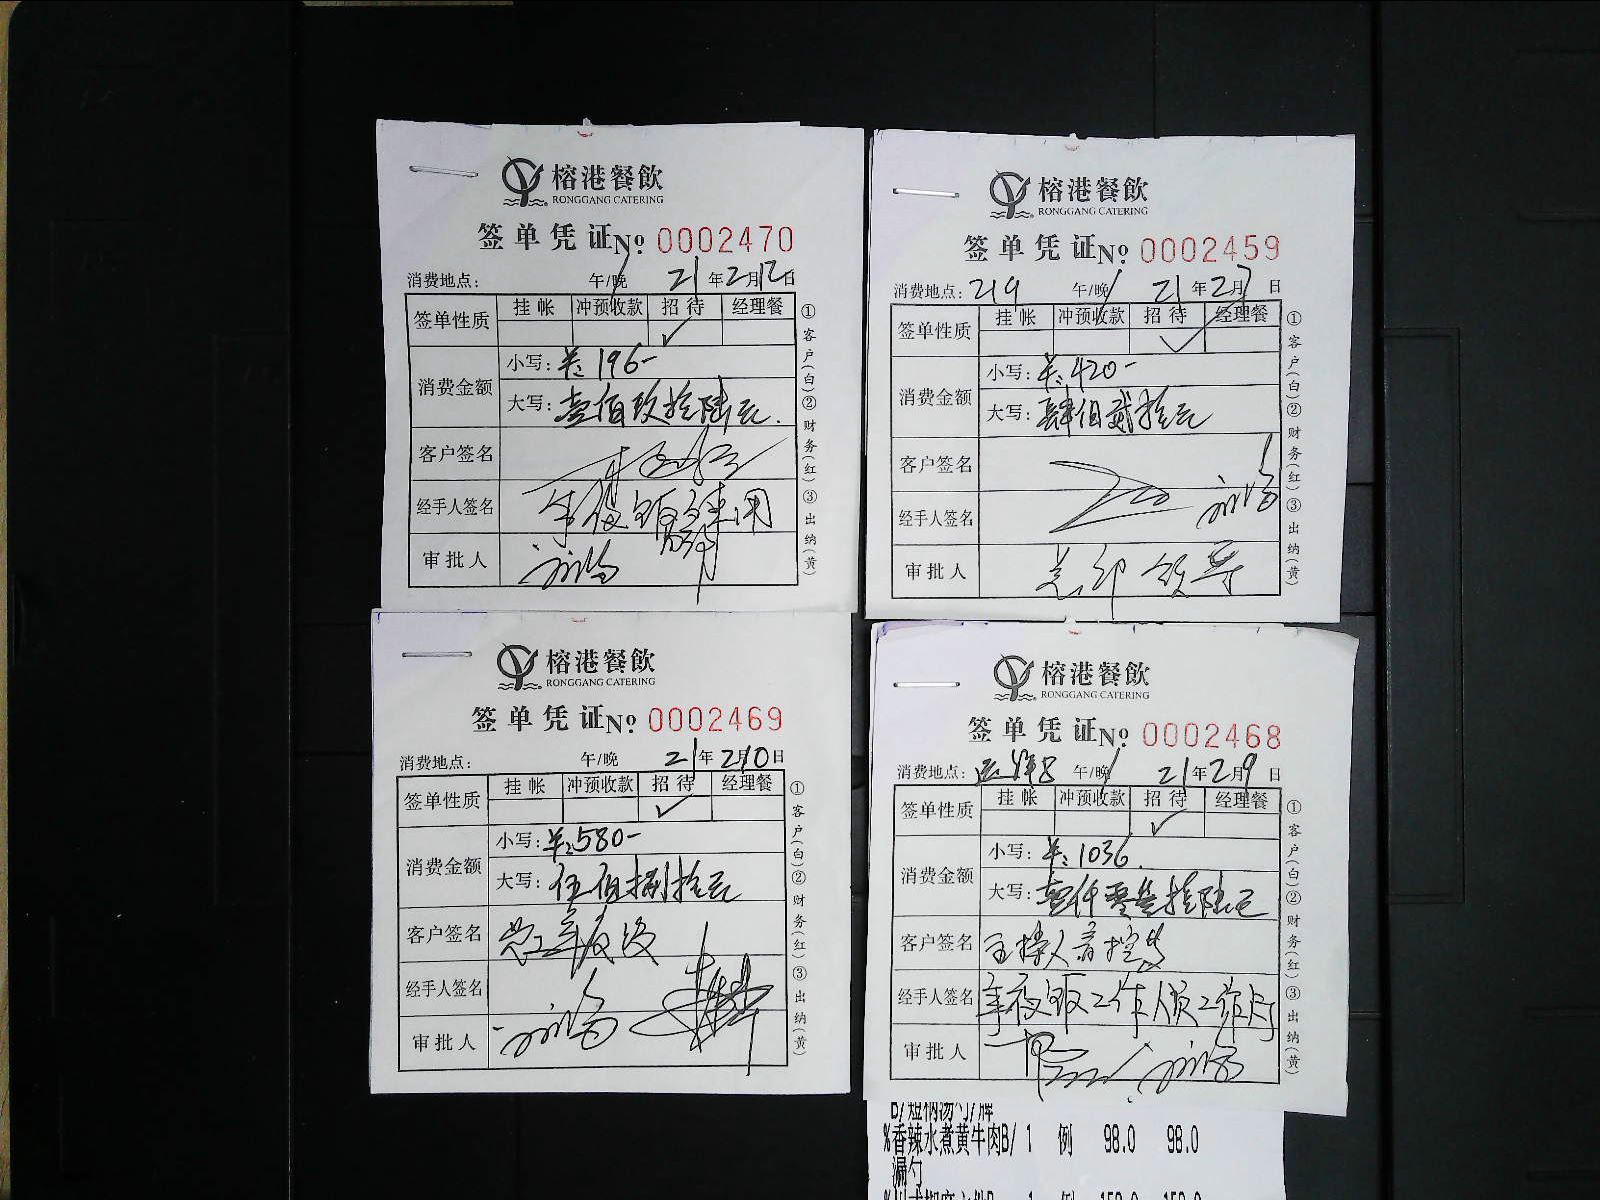 榕港餐飲
RONGGANG CATERING
签单凭证 No 0002470
消费地点: 午/晚 21年2月12日
签单性质 挂帐 冲预收款 招待 经理餐
✓
消费金额 小写: ¥:196-
大写: 壹佰玖拾陆元.
客户签名
经手人签名 年夜饭 用
审批人
①客户(白)②财务(红)③出纳(黄)
榕港餐飲
RONGGANG CATERING
签单凭证 No 0002459
消费地点: 219 午/晚 21年2月7日
签单性质 挂帐 冲预收款 招待 经理餐
✓
消费金额 小写: ¥:420-
大写: 肆佰贰拾元
客户签名
经手人签名
审批人
①客户(白)②财务(红)③出纳(黄)
榕港餐飲
RONGGANG CATERING
签单凭证 No 0002469
消费地点: 午/晚 21年2月10日
签单性质 挂帐 冲预收款 招待 经理餐
✓
消费金额 小写: ¥:580-
大写: 伍佰捌拾元
客户签名
经手人签名
审批人
①客户(白)②财务(红)③出纳(黄)
榕港餐飲
RONGGANG CATERING
签单凭证 No 0002468
消费地点: 午/晚 21年2月9日
签单性质 挂帐 冲预收款 招待 经理餐
✓
消费金额 小写: ¥:1036.
大写: 壹仟零叁拾陆元
客户签名 主持人音控
经手人签名 年夜饭工作人员工作
审批人
①客户(白)②财务(红)③出纳(黄)
B/短柄汤勺/牌
%香辣水煮黄牛肉B/ 1 例 98.0 98.0
漏勺